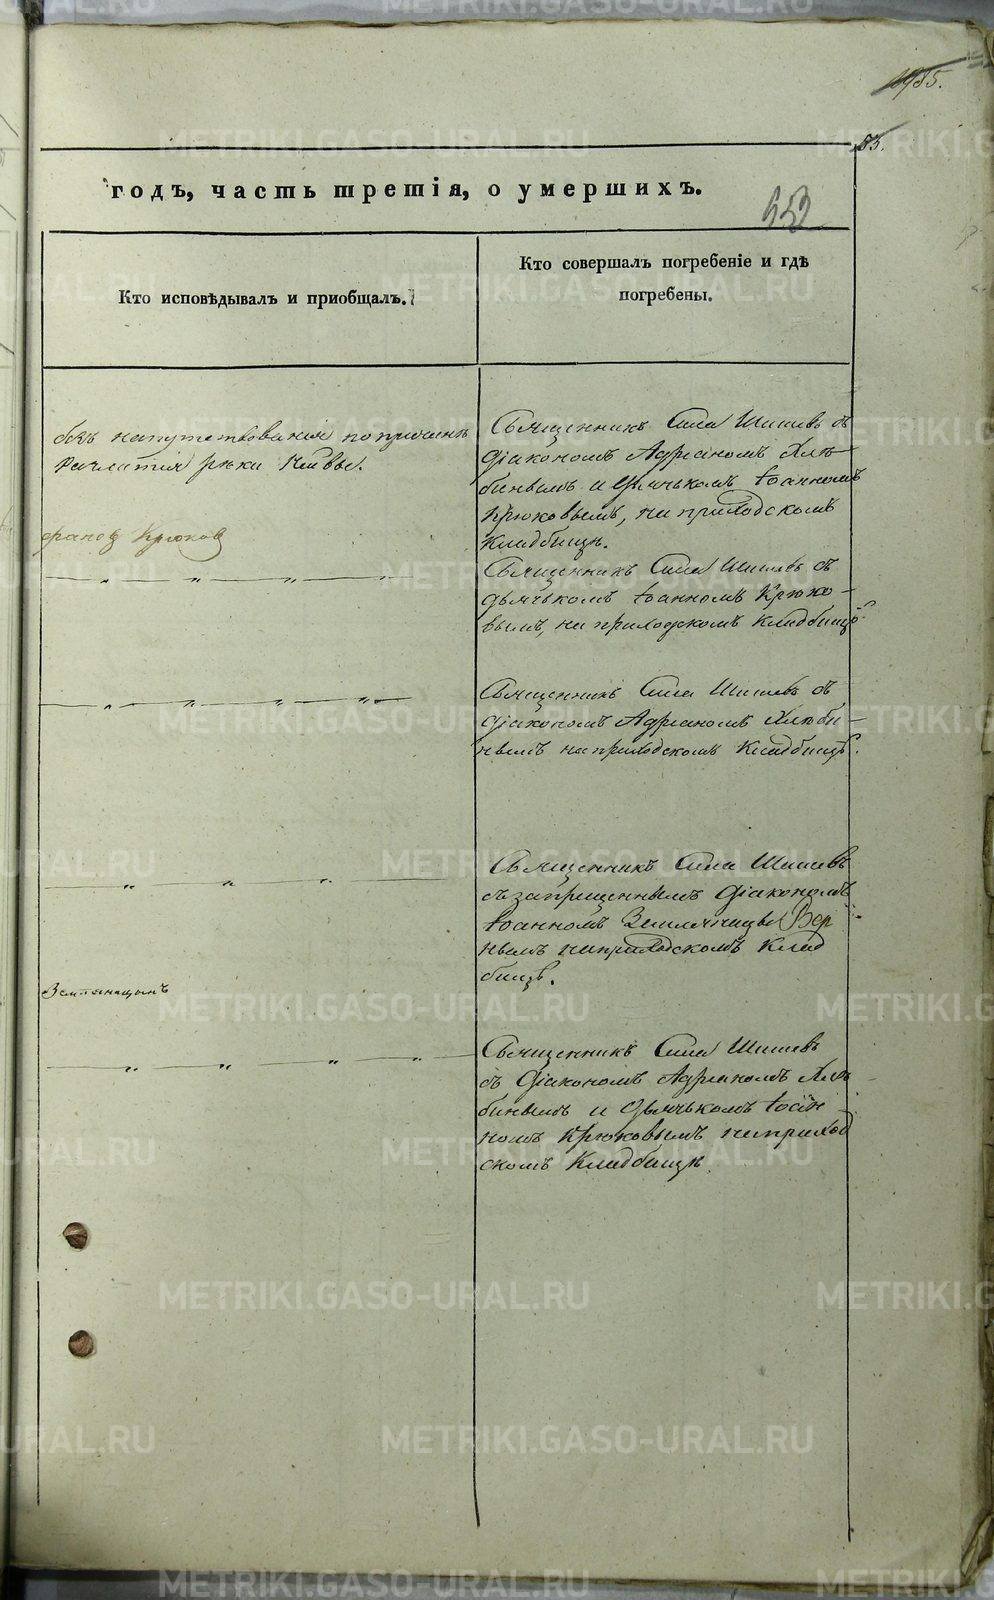 55.
годъ, часть третія, о умершихъ.
Кто исповѣдывалъ и приобщалъ.
Кто совершалъ погребеніе и гдѣ
погребены.
безъ напутствованія по причинѣ
разлитія рѣки
Священникъ Сила Шишевъ съ
діакономъ Адріаномъ Хлю
бинымъ и дьячькомъ Іоанномъ
Крюковымъ, на приходскомъ
кладбищѣ.
Крюков
Священникъ Сила Шишевъ съ
дьячькомъ Іоанномъ Крюко-
вымъ, на приходскомъ кладбищѣ
Священникъ Сила Шишевъ съ
діакономъ Адріаномъ Хлюби-
нымъ на приходскомъ кладбищѣ.
Священникъ Сила Шишевъ
съ запрещеннымъ діакономъ
Іоанномъ
нымъ на приходскомъ клад
бищѣ.
Священникъ Сила Шишевъ
съ діакономъ Адріаномъ Хлю
бинымъ и дьячькомъ Іоан
номъ Крюковымъ на приход
скомъ кладбищѣ.
METRIKI.GASO-URAL.RU